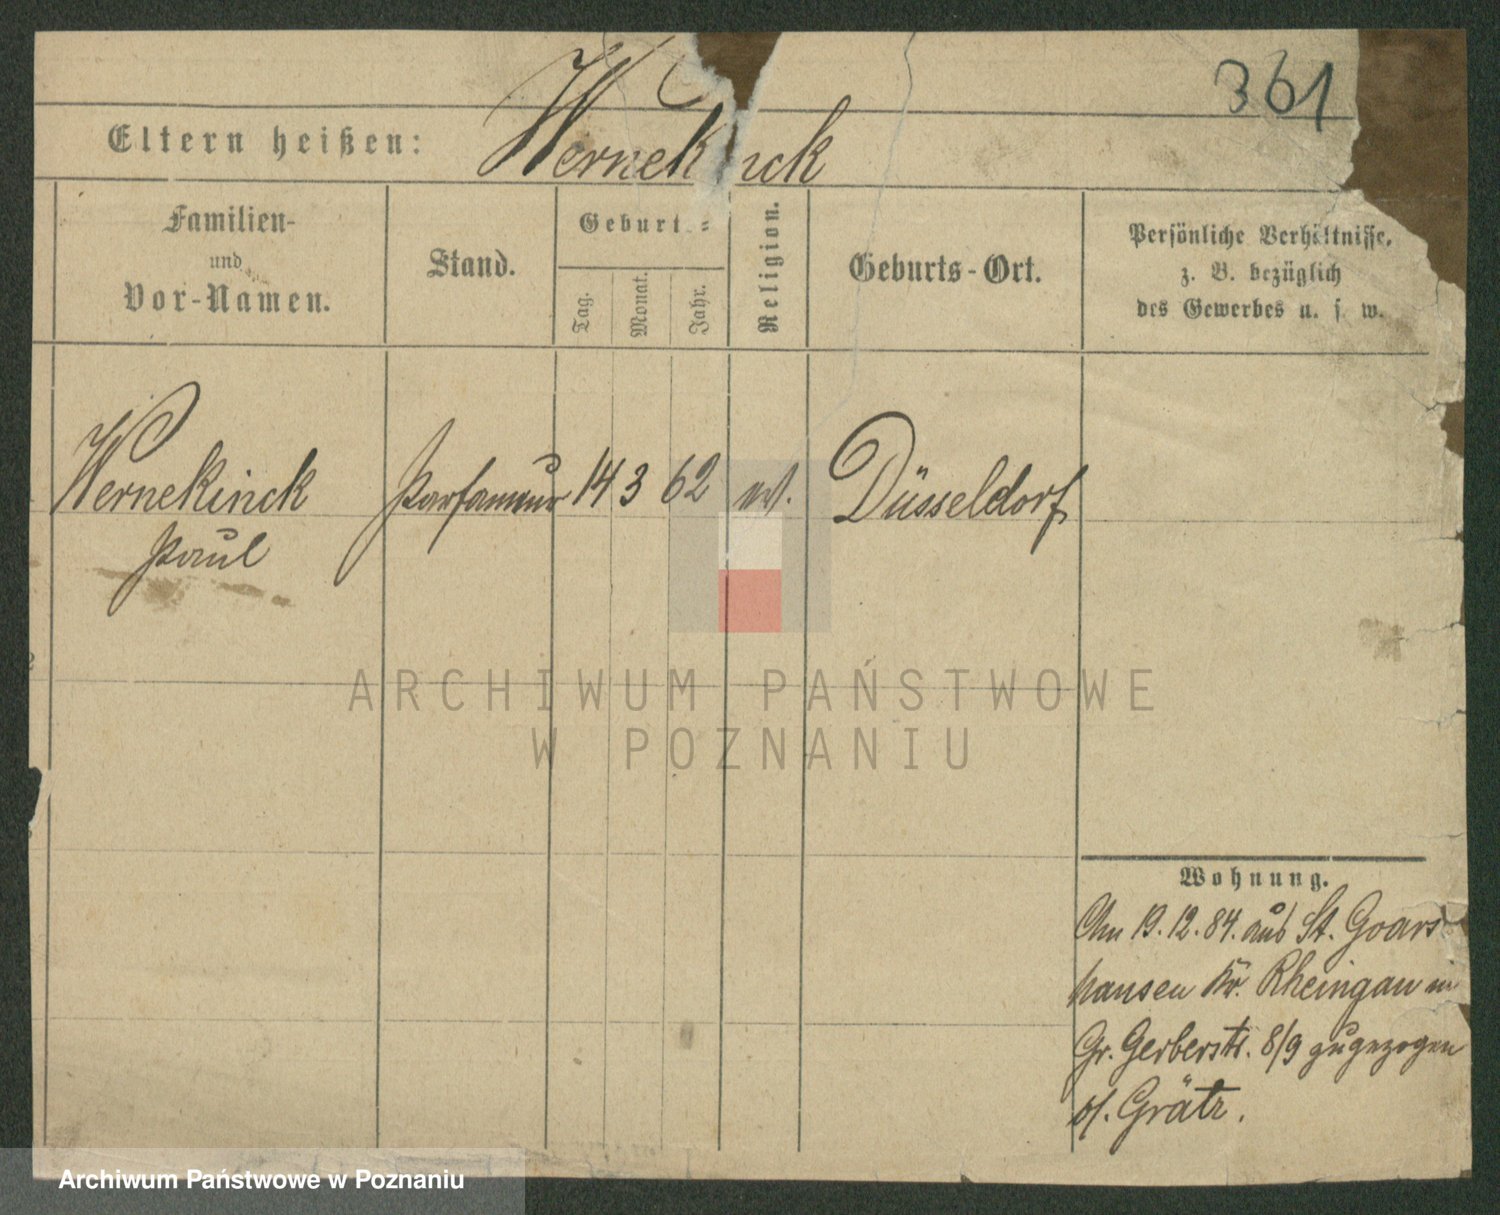 361
Eltern heißen: Wernekinck
Familien-
und
Vor-Namen.
Stand.
Geburts-
Tag.
Monat.
Jahr.
Religion.
Geburts-Ort.
Persönliche Verhältnisse,
z. B. bezüglich
des Gewerbes u. s. w.
Wernekinck 14 3 62 ev. Düsseldorf
Paul
ARCHIWUM PAŃSTWOWE
W POZNANIU
Wohnung.
Am 19.12.84. aus St. Goars-
hausen Kr. Rheingau in
Gr. Gerberstr. 8/9 zugezogen
b/. Grätz.
Archiwum Państwowe w Poznaniu